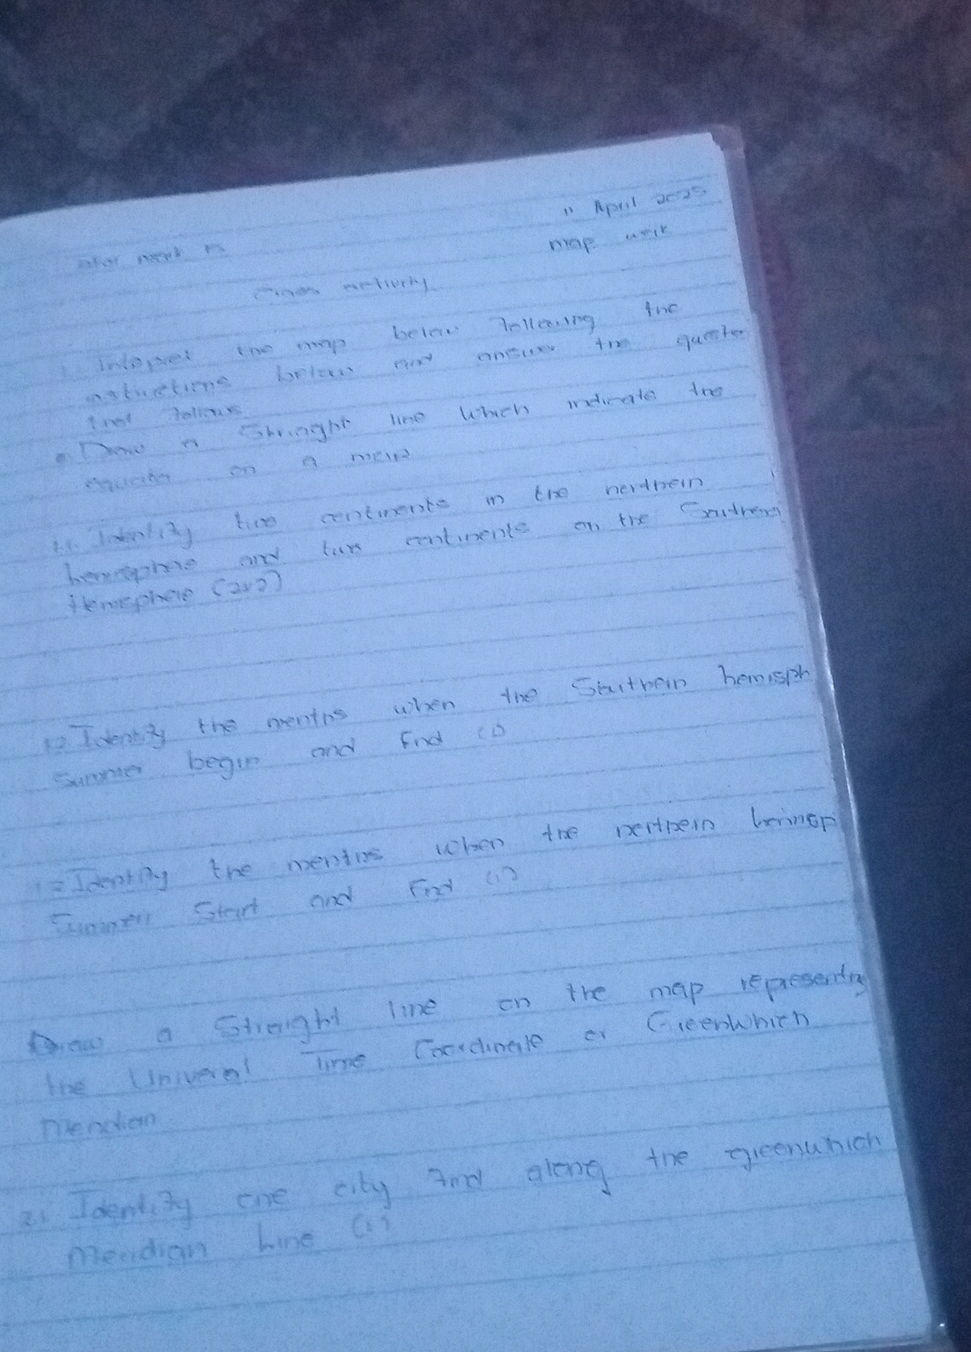 11 April 2025
map work
activity
the map below following the
below and answer the
that follows
Draw a Straight line which indicate the
on a map
1.1. Identify two continents in the northern
hemisphere and two continents on the Southern
Hemisphere (2x2)
1.2 Identify the months when the Southern hemisph
Summer begin and End (1)
Identify the months when the northern hemisp
Summer Start and End (1)
Draw a Straight line on the map representing
the Univeral Time Coordinate or Greenwhich
Meridian
2.1 Identify one city find along the greenwhich
Meridian Line (1)